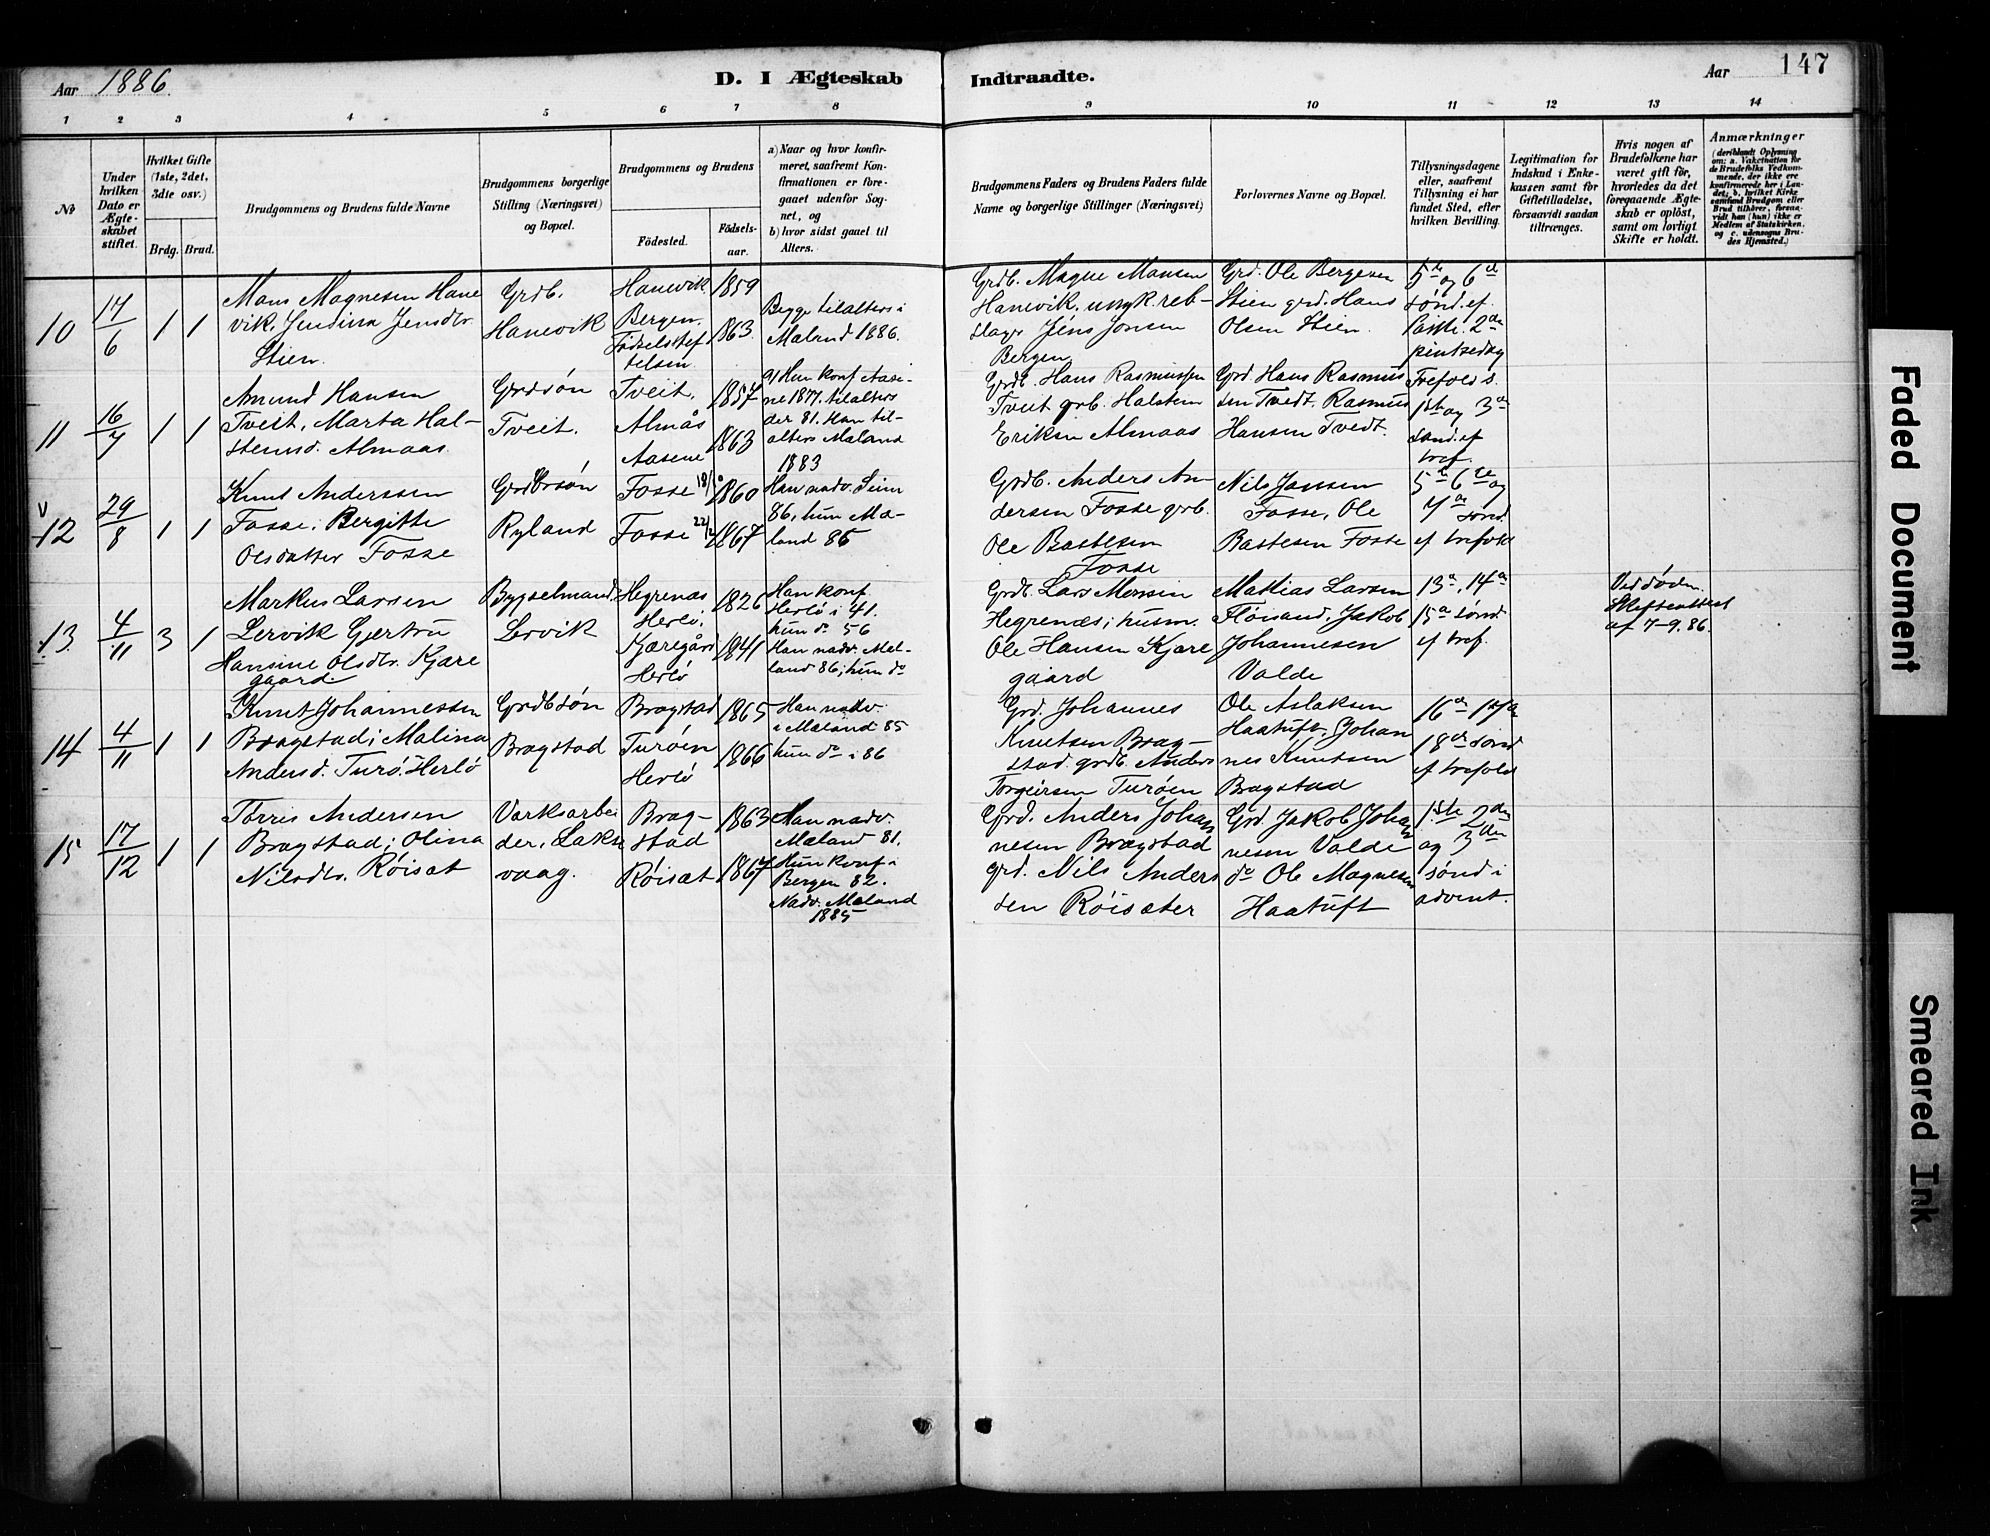 Aar 1886.
D. I Ægteskab Indtraadte.
Aar 147
1 2 3 4 5 6 7 8 9 10 11 12 13 14
No
Under hvilken Dato er Ægteskabet stiftet.
Hvilket Gifte (1ste, 2det, 3die osv.)
Brdg. Brud.
Brudgommens og Brudens fulde Navne
Brudgommens borgerlige Stilling (Næringsvei) og Bopæl.
Brudgommens og Brudens
Födested.
Födselsaar.
a) Naar og hvor konfirmeret, saafremt Konfirmationen er foregaaet udenfor Sognet, og
b) hvor sidst gaaet til Alters.
Brudgommens Faders og Brudens Faders fulde Navne og borgerlige Stillinger (Næringsvei)
Forlovernes Navne og Bopæl.
Tillysningsdagene eller, saafremt Tillysning ei har fundet Sted, efter hvilken Bevilling.
Legitimation for Indskud i Enkekassen samt for Giftetilladelse, forsaavidt saadan tiltrænges.
Hvis nogen af Brudefolkene har været gift før, hvorledes da det foregaaende Ægteskab er opløst, samt om lovligt Skifte er holdt.
Anmærkninger
(deriblandt Oplysning om: a. Vakcination for de Brudefolks Vedkommende, der ikke ere konfirmerede her i Landet; b. hvilket Kirkesamfund Brudgom eller Brud tilhører, forsaavidt han (hun) ikke er Medlem af Statskirken, og c. udensogns Brudes Hjemsted.)
10
17/6
1 1
Mons Magnesen Hane
vik, Jendina Jensdtr
Stien.
Grdb.
Hanevik
Hanevik
Bergen.
Fødselsstif
telsen
1859
1863
Begge tilalters i
Mæland 1886.
Grdb. Magne Monsen
Hanevik, ungk. reb-
slager Jens Jonsen
Bergen
Grd. Ole Bergesen
Stien grd. Hans
Olsen Stien.
5te og 6te
sønd. ef.
Paaske. 2den
pintsedag
11
16/7
1 1
Amund Hansen
Tveit, Marta Hal-
stensd. Almaas.
Grdbsön
Tveit.
Tveit.
Almås
Aasene
1857
1863
a) Hun konf. Aase-
ne 1877. tilalters
der 81. Han til-
alters Mæland
1883
Grdb. Hans Rasmussen
Tveit grb. Halsten
Eriksen Almaas
Grd. Hans Rasmus
sen Tvedt. Rasmus
Hansen Tvedt.
Trefold s.
1ste og 3die
sönd. ef
tref.
v
12
29/8
1 1
Knut Anderssen
Fosse; Bergitte
Olsdatter Fosse
Grdbrsön
Ryland
Fosse
Fosse
1860
1867
Han nadv. Seim
86, hun Mæ-
land 86
Grdb. Anders An-
dersen Fosse grb.
Ole Bastesen
Fosse
Nils Jansen
Fosse, Ole
Bastesen Fosse
5te 6te og
7de sönd.
ef trefold
13
4/11
3 1
Markus Larsen
Lervik Gjertru
Hansine Olsdtr. Kjære
gaard
Bygselmand
Lervik
Hegrenæs
Herlö.
Kjæregård
Herlö
1826
1841
Han konf.
Herlö i 41.
hun do 56
Han nadv. Mæ-
land 86; hun do
Grdb. Lars Monsen
Hegrenæs; husm.
Ole Hansen Kjære
gaard
Mathias Larsen
Flönæs. Jakob
Johannesen
Valde
13de, 14de
15de sönd.
ef tref.
Ved døden.
Skifteattest
af 7-9. 86.
14
4/11
1 1
Knut Johannessen
Brogstad; Malina
Andersd. Turö. Herlö
Grdbsön
Brogstad
Brogstad
Turöen
Herlö
1865
1866
Han nadv.
i Mæland 85
hun do i 86
Grd. Johannes
Knutsen Brog-
stad. grdb. Anders
Torgeirsen Turöen
Ole Aslaksen
Haatuft. Johan
nes Knutsen
Brogstad
16de 17de
18de sönd
ef trefold
15
17/12
1 1
Torris Andersen
Brogstad; Olina
Nilsdtr. Röisæt
Værksarbei
der, Lakse
vaag.
Brog-
stad
Röisæt
1863
1867
Han nadv.
Mæland 81.
Hun konf i
Bergen 82.
Nadv. Mæland
1885
Grd. Anders Johan
nesen Brogstad
grd. Nils Anders
sen Röisæter
Grd. Jakob Johan
nesen Valde
do Ole Magnesen
Haatuft
1ste 2den
og 3den
sönd i
advent.
Faded Document
Smeared Ink